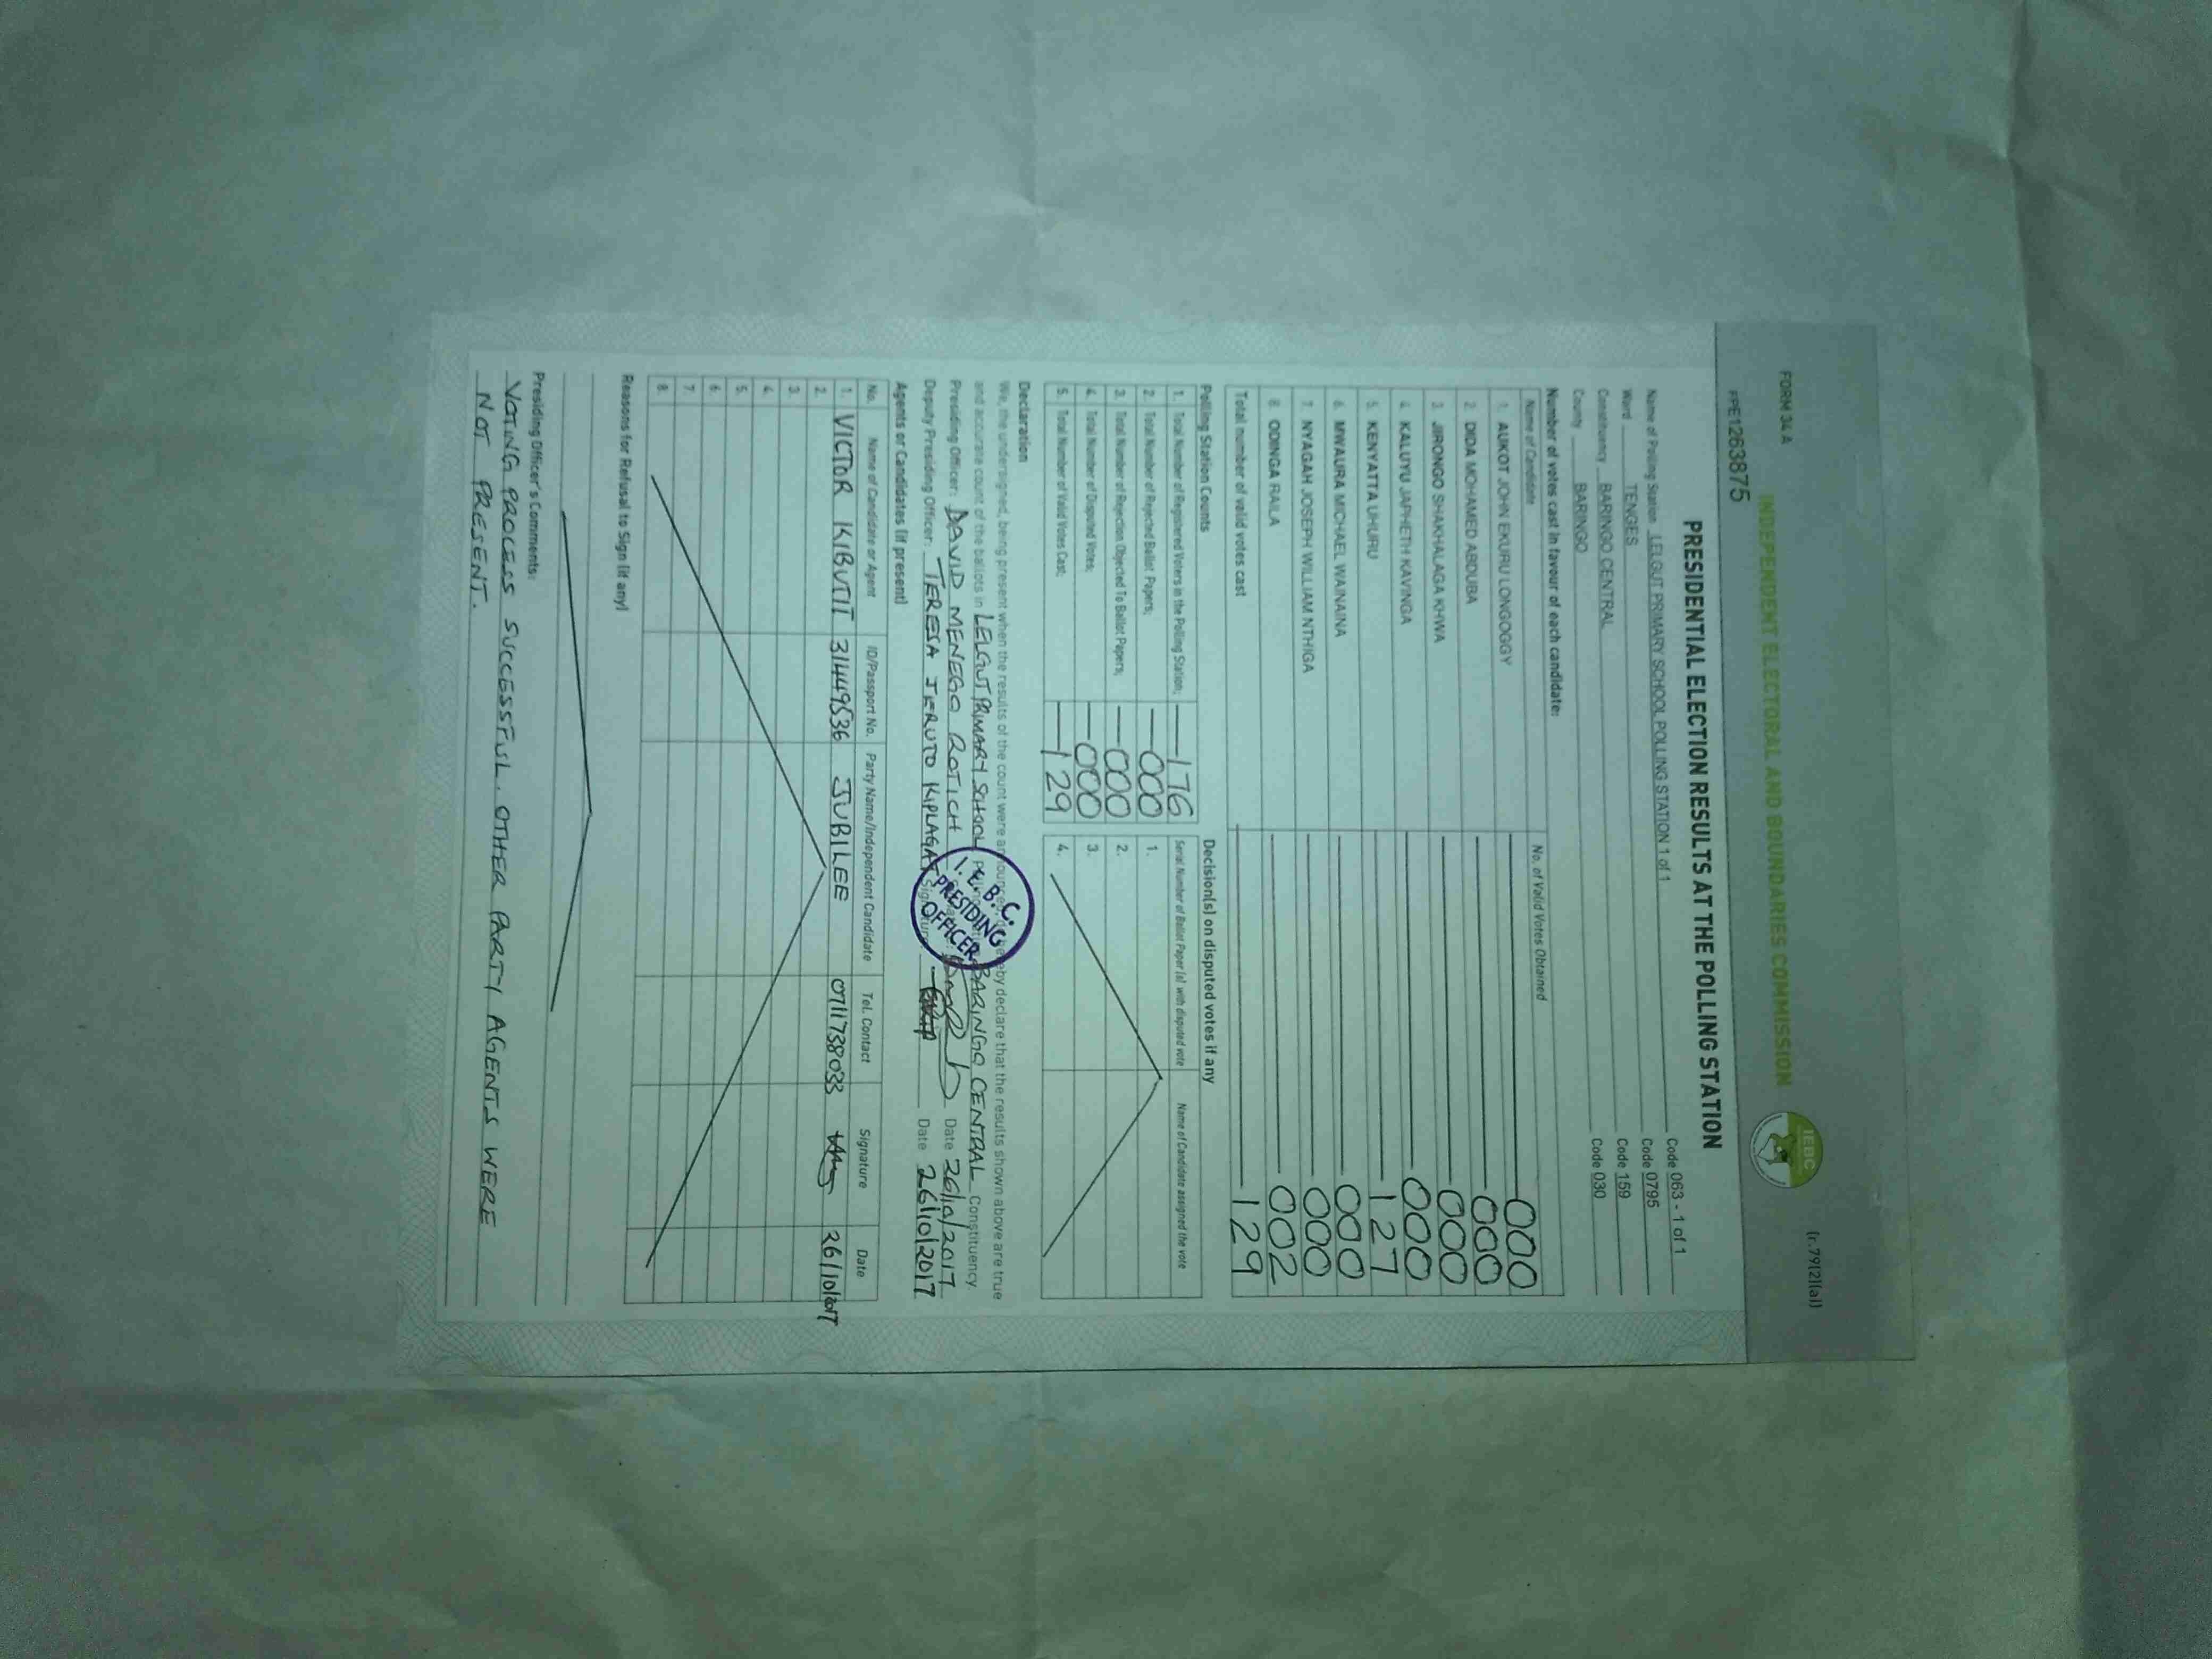 FORM 34 A
(r.79(2)(a))
INDEPENDENT ELECTORAL AND BOUNDARIES COMMISSION
IEBC
FPE1263875
PRESIDENTIAL ELECTION RESULTS AT THE POLLING STATION
Name of Polling Station LELGUT PRIMARY SCHOOL POLLING STATION 1 of 1 Code 063 - 1 of 1
Ward TENGES Code 0795
Constituency BARINGO CENTRAL Code 159
County BARINGO Code 030
Number of votes cast in favour of each candidate:
Name of Candidate No. of Valid Votes Obtained
1. AUKOT JOHN EKURU LONGOGGY 000
2. DIDA MOHAMED ABDUBA 000
3. JIRONGO SHAKHALAGA KHWA 000
4. KALUYU JAPHETH KAVINGA 000
5. KENYATTA UHURU 127
6. MWAURA MICHAEL WAINAINA 000
7. NYAGAH JOSEPH WILLIAM NTHIGA 000
8. ODINGA RAILA 002
Total number of valid votes cast 129
Polling Station Counts
1. Total Number of Registered Voters in the Polling Station; 176
2. Total Number of Rejected Ballot Papers; 000
3. Total Number of Rejection Objected To Ballot Papers; 000
4. Total Number of Disputed Votes; 000
5. Total Number of Valid Votes Cast; 129
Decision(s) on disputed votes if any
Serial Number of Ballot Paper (s) with disputed vote Name of Candidate assigned the vote
1.
2.
3.
4.
Declaration
We, the undersigned, being present when the results of the count were announced, do hereby declare that the results shown above are true
and accurate count of the ballots in LELGUT PRIMARY SCHOOL BARINGO CENTRAL Constituency.
Presiding Officer: DAVID MENEGO ROTICH Date 26/10/2017
Deputy Presiding Officer: TERESA JERUTO KIPLAGAT Signature Date 26/10/2017
I. E. B. C.
PRESIDING
OFFICER
Agents or Candidates (if present)
No. Name of Candidate or Agent ID/Passport No. Party Name/Independent Candidate Tel. Contact Signature Date
1. VICTOR KIBUTIT 31449536 JUBILEE 0711738033 26/10/2017
2.
3.
4.
5.
6.
7.
8.
Reasons for Refusal to Sign (if any)
Presiding Officer's Comments:
VOTING PROCESS SUCCESSFUL. OTHER PARTY AGENTS WERE
NOT PRESENT.